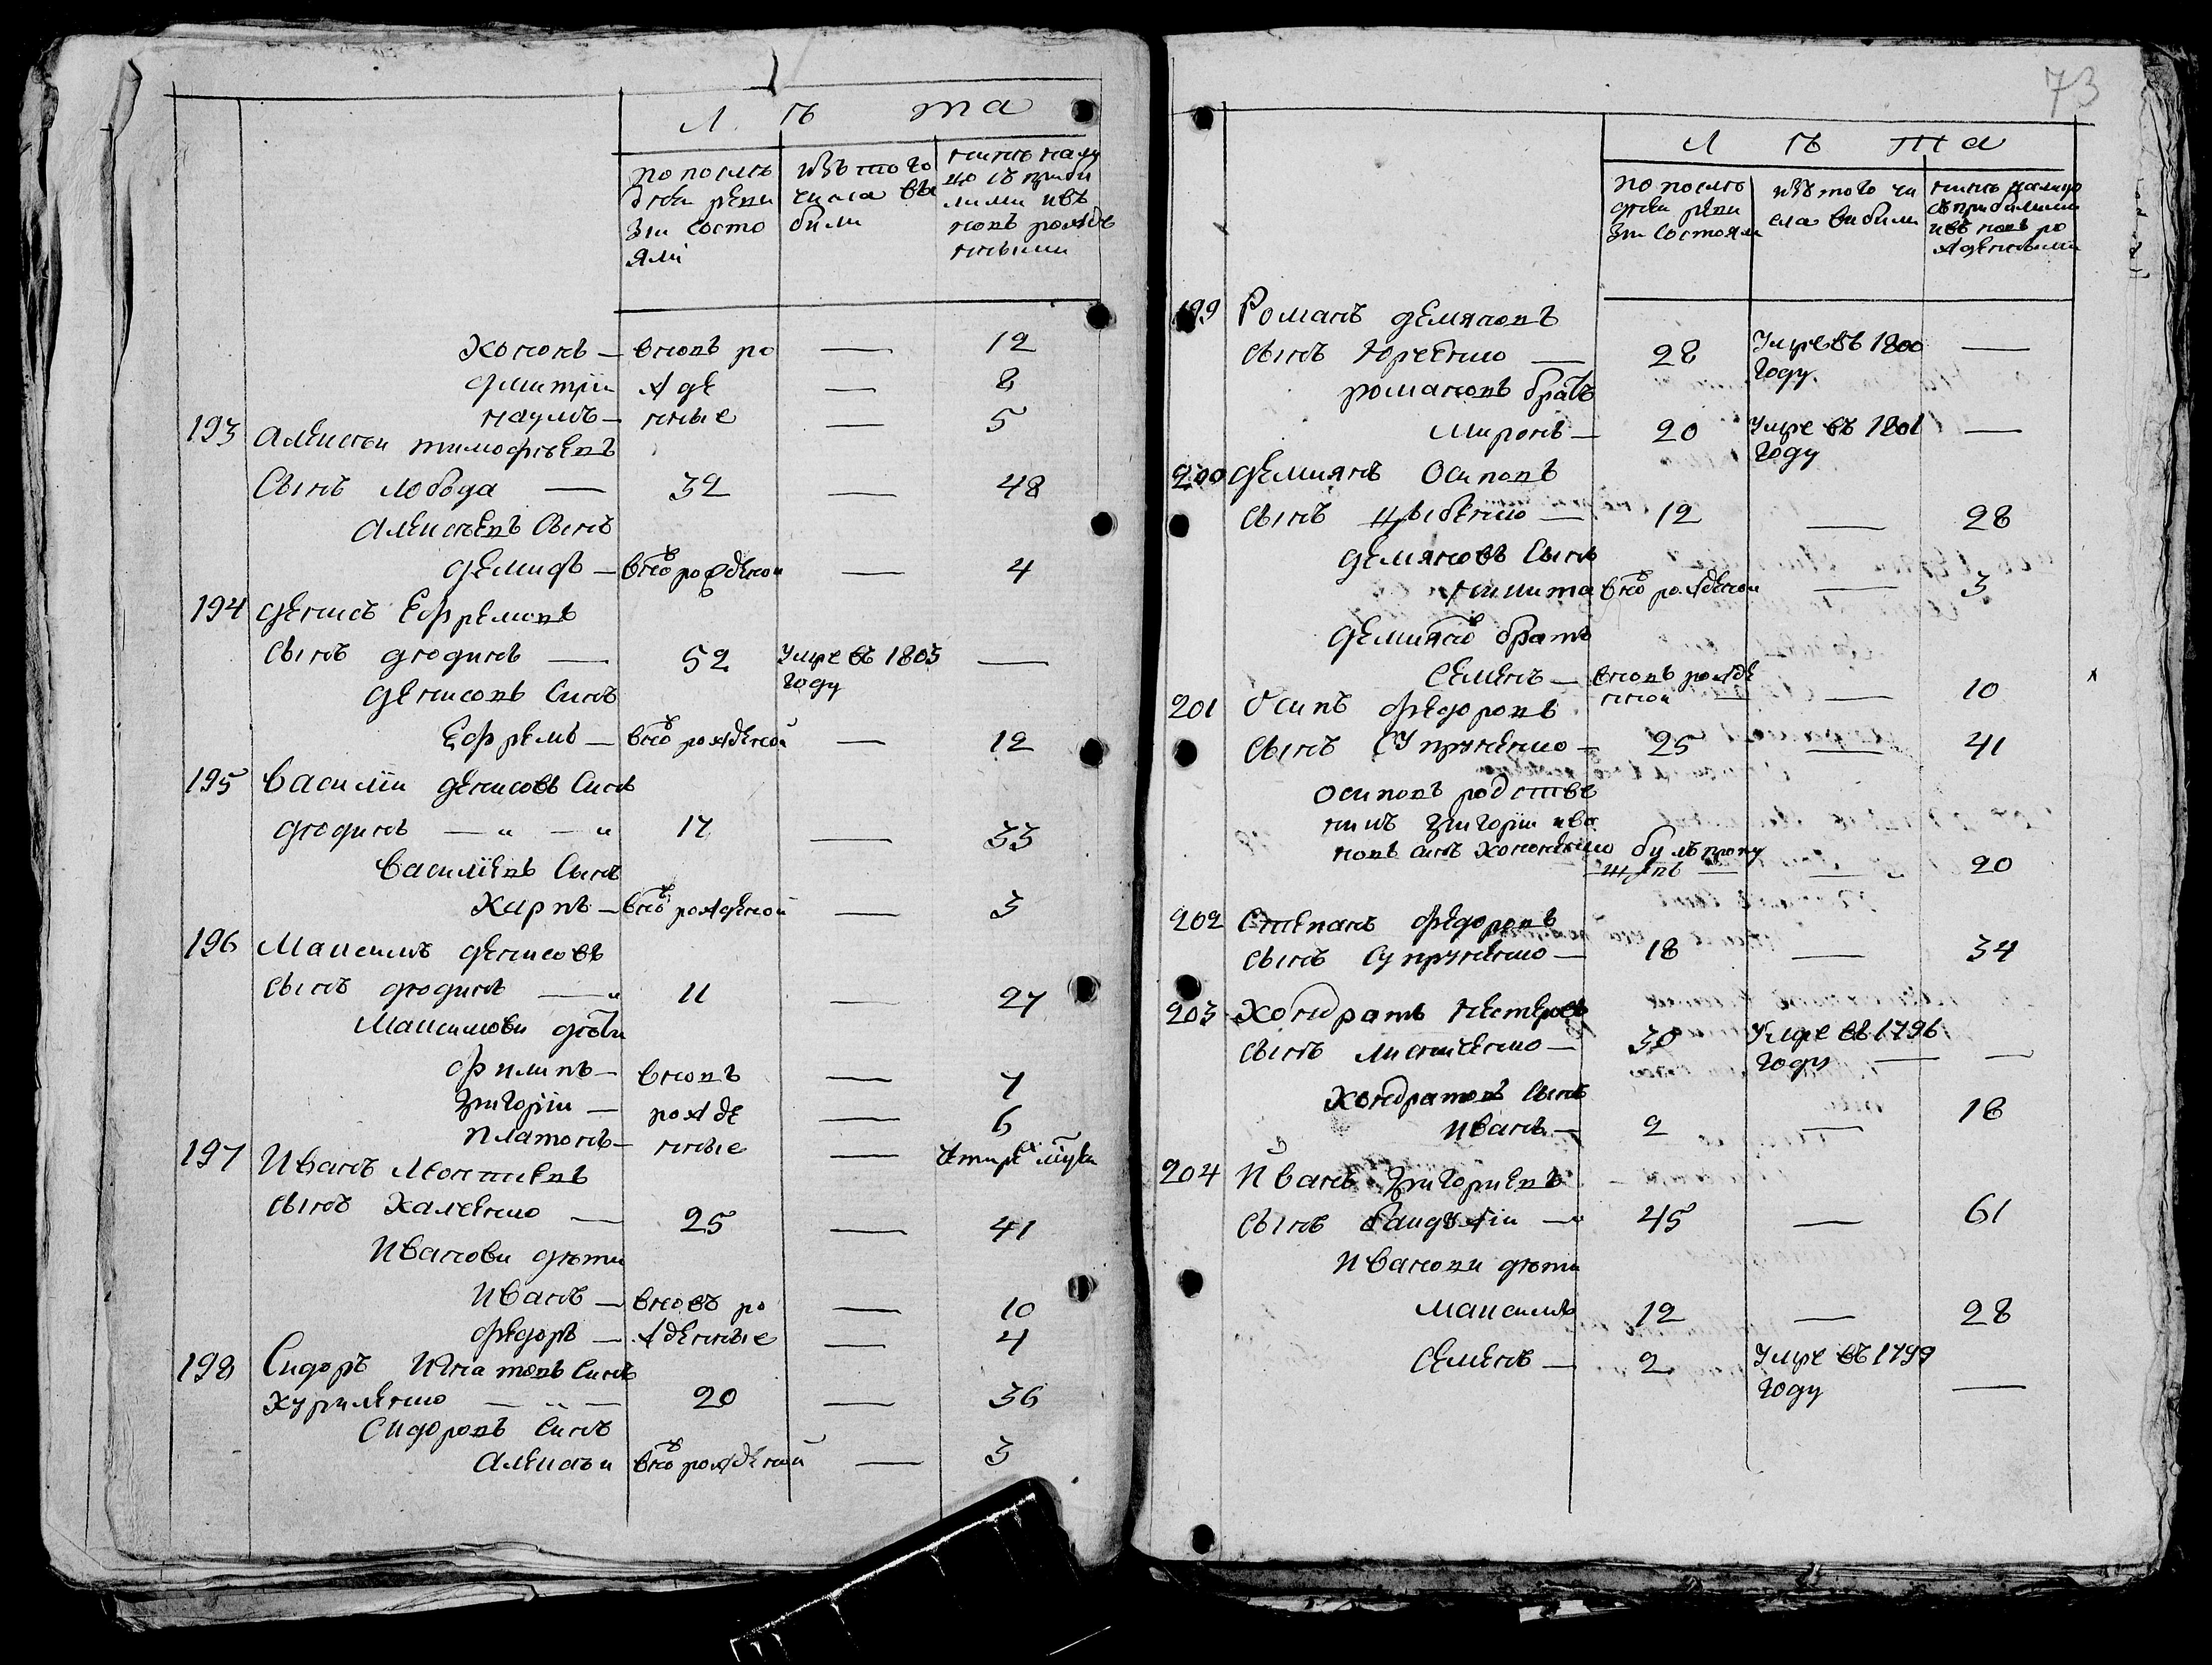 Л ѣ та
по послѣ
дней реви
зіи состо
яли
изъ того
числа вы
были
нынѣ на лу
цо съ прибы
лыми и въ
новъ рожде
нными
Кононъ — вновъ ро — 12
Дмитрій жде — 8
Наумъ — нные — 5
193 Алексѣй Тимофѣевъ
сынъ Лобода — 32 — 48
Алексѣевъ сынъ
Демидъ — вновъ рожденой — 4
194 Денисъ Ефремовъ
сынъ Дюдинъ — 52 Умре въ 1803 —
году
Денисовъ синъ
Ефремъ — вновъ рожденой — 12
195 Василій Денисовъ синъ
Дюдинъ — " — " 17 — 33
Василіевъ сынъ
Карпъ — вновъ рожденой — 3
196 Максимъ Денисовъ
сынъ Дюдинъ — " 11 — 27
Максимови дѣти
Филипъ — вновъ — 7
Григорій — рожде — 6
Платонъ — нные —
197 Иванъ
сынъ Халенко — 25 — 41
Иванови дѣти
Иванъ — вновъ ро — 10
Федоръ — жденные — 4
198 Сидоръ Игнатовъ синъ
Куриленко — " — 20 — 36
Сидоровъ синъ
Алексѣй вновъ рожденой — 3
73
Л ѣ та
по послѣ
дней реви
зіи состояли
изъ того чи
сла вибыли
нынѣ налицо
съ прибылими
и въ новъ ро
жденными
199 Романъ Демяновъ
сынъ Юрченко — 28 Умре въ 1800 —
году
Романовъ братъ
Миронъ — 20 Умре въ 1801 —
году
200 Демиянъ Осиповъ
сынъ Цыбенко — 12 — 28
Демяновъ сынъ
Никита вновъ рожденой — 3
Демияновъ братъ
Семенъ — вновъ рожде
нной — 10
201 Осипъ Федоровъ
сынъ Супруненко — 25 — 41
Осиповъ родстве
никъ Григорій Ива
новъ синъ Кононенко былъ пропу
щенъ — — 20
202 Степанъ Федоровъ
сынъ Супруненко — 18 — 34
203 Кондратъ Нестеровъ
сынъ — 30 Умре въ 1796
году — —
Кондратовъ сынъ
Иванъ — 2 — 18
204 Иванъ Григориевъ
сынъ — " 45 — 61
Иванови дѣти
Максимъ 12 — 28
Семенъ — 2 Умре въ 1799
году —